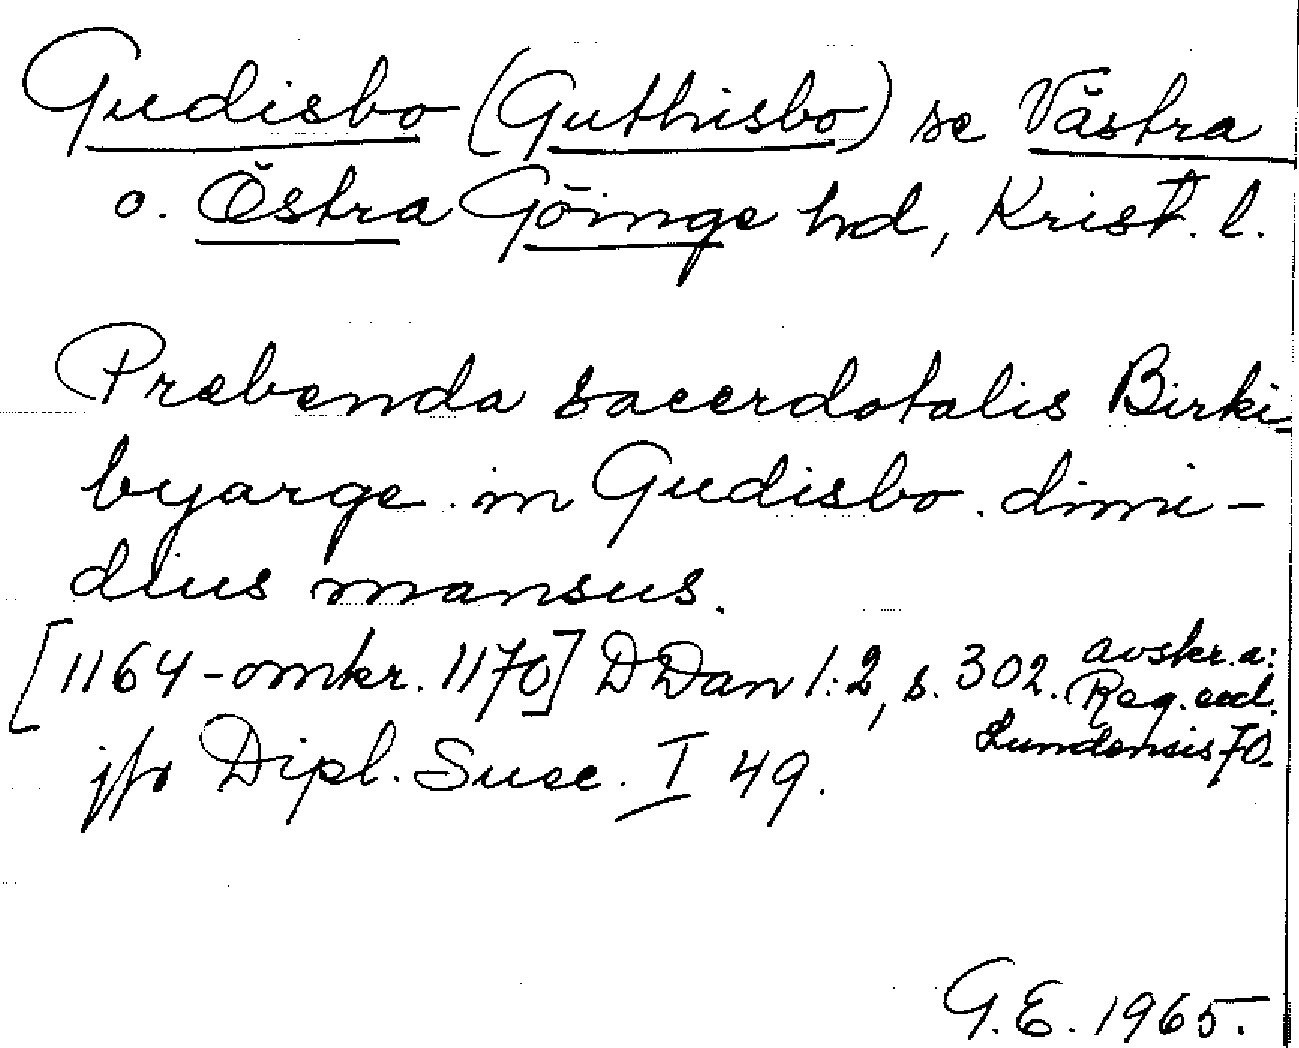 Gudisbo (Guthisbo) se Västra
o. Östra Göinge hd, Krist. l.
Prebenda sacerdotalis Birki-
byarge in Gudisbo. dimi-
dius mansus.
[1164-omkr. 1170] DDan 1:2, s. 302. avskr. a:
Reg. eccl.
Lundensis 70.
jfr Dipl. Suec. I 49.
G.E. 1965.